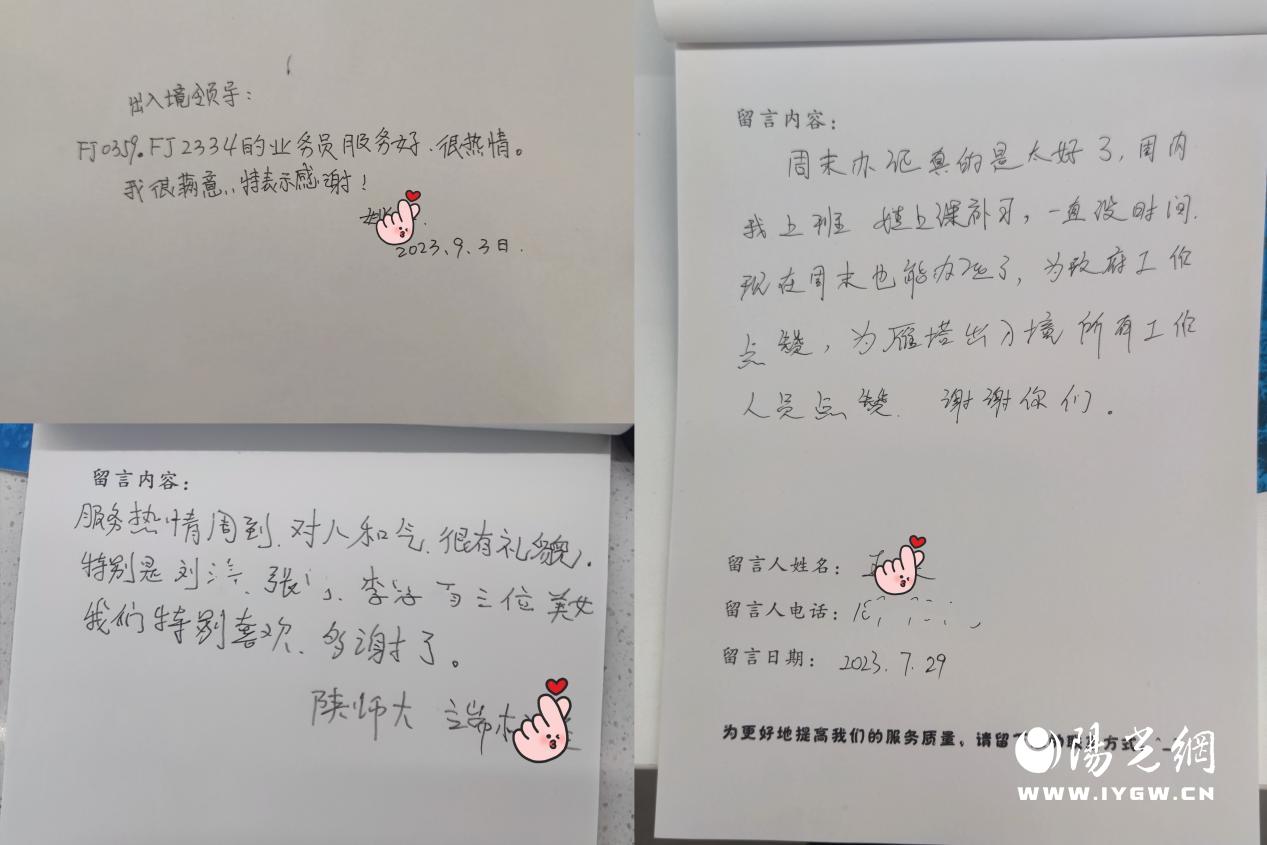 出入境领导:
FJ0359。FJ2334的业务员服务好、很热情。
我很满意,特表示感谢!
2023、9、3日.
留言内容:
服务热情周到、对人和气、很有礼貌,
特别是刘 张 李 三位美女
我们特别喜欢、多谢了。
陕师大
留言内容:
周末办证真的是太好了,周内
我上班 娃上课补习,一直没时间.
现在周末也能办证了,为政府工作
点赞,为雁塔出入境所有工作
人员点赞. 谢谢你们。
留言人姓名:
留言人电话:
留言日期: 2023.7.29
为更好地提高我们的服务质量,请留 方式
陽光網
WWW.IYGW.CN